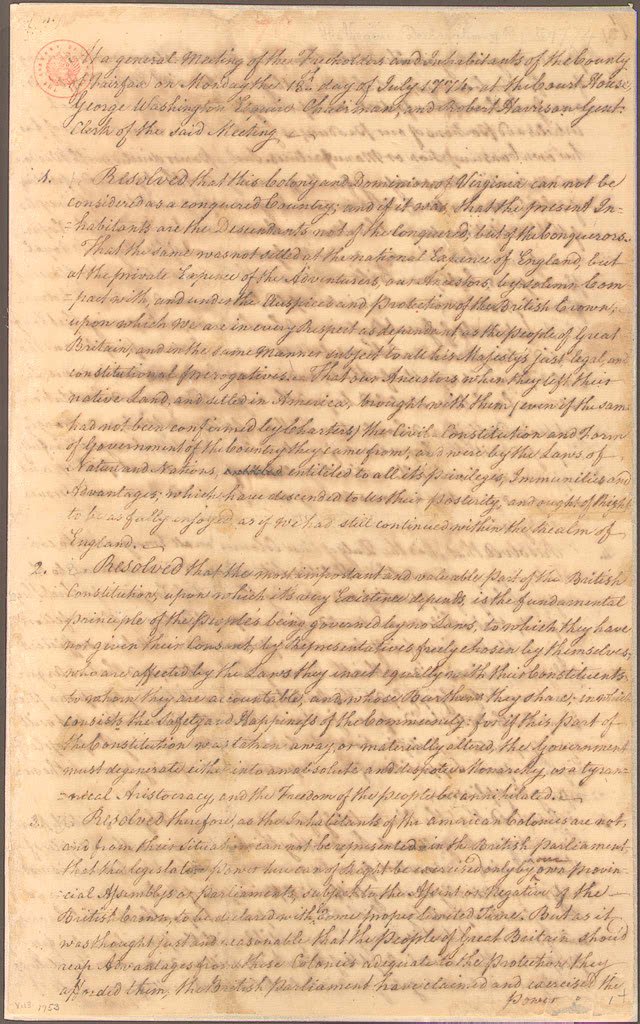 At a general Meeting of the Freeholders and Inhabitants of the County
of Fairfax on Monday the 18th day of July 1774, at the Court House,
George Washington Esquire Chairman, and Robert Harrison Gent.
Clerk of the said Meeting
1. Resolved that this Colony and Dominion of Virginia can not be
considered as a conquered Country; and if it was, that the present In-
=habitants are the Descendants not of the Conquered, but of the Conquerors.
That the same was not setled at the national Expence of England, but
at the private Expence of the Adventurers, our Ancestors, by solemn Com
=pact with, and under the Auspices and Protection of the British Crown;
upon which we are in every Respect as dependant as the People of Great
Britain, and in the same Manner subject to all his Majesty's just, legal, and
constitutional Prerogatives. That our Ancestors, when they left their
native Land, and setled in America, brought with them (even if the same
had not been confirmed by Charters) the Civil Constitution and Form
of Government of the Country they came from; and were by the Laws of
Nature and Nations, entitiled to all its Privileges, Immunities and
Advantages; which have descended to us their Posterity, and ought of Right
to be as fully enjoyed, as if we had still continued within the Realm of
England.
2. Resolved that the most important and valuable Part of the British
Constitution, upon which its very Existence depends, is the fundamental
Principle of the People's being governed by no Laws, to which they have
not given their Consent, by Representatives freely chosen by themselves;
who are affected by the Laws they enact equally with their Constituents;
to whom they are accountable, and whose Burthens they share; in which
consists the Safety and Happiness of the Community: for if this Part of
the Constitution was taken away, or materially altered, the Government
must degenerate either into an absolute and despotic Monarchy, or a tyran-
=nical Aristocracy, and the Freedom of the People be annihilated.
3. Resolved therefore, as the Inhabitants of the american Colonies are not,
and from their Situation can not be represented in the British Parliament,
that the legislative Power here can of Right be exercised only by our own Provin
=cial Assemblys or Parliaments, subject to the Assent or Negative of the
British Crown, to be declared within some proper limited Time. But as it
was thought just and reasonable that the People of Great Britain should
reap Advantages from these Colonies adequate to the Protection they
afforded them, the British Parliament have claimed and exercised the
Power
1753